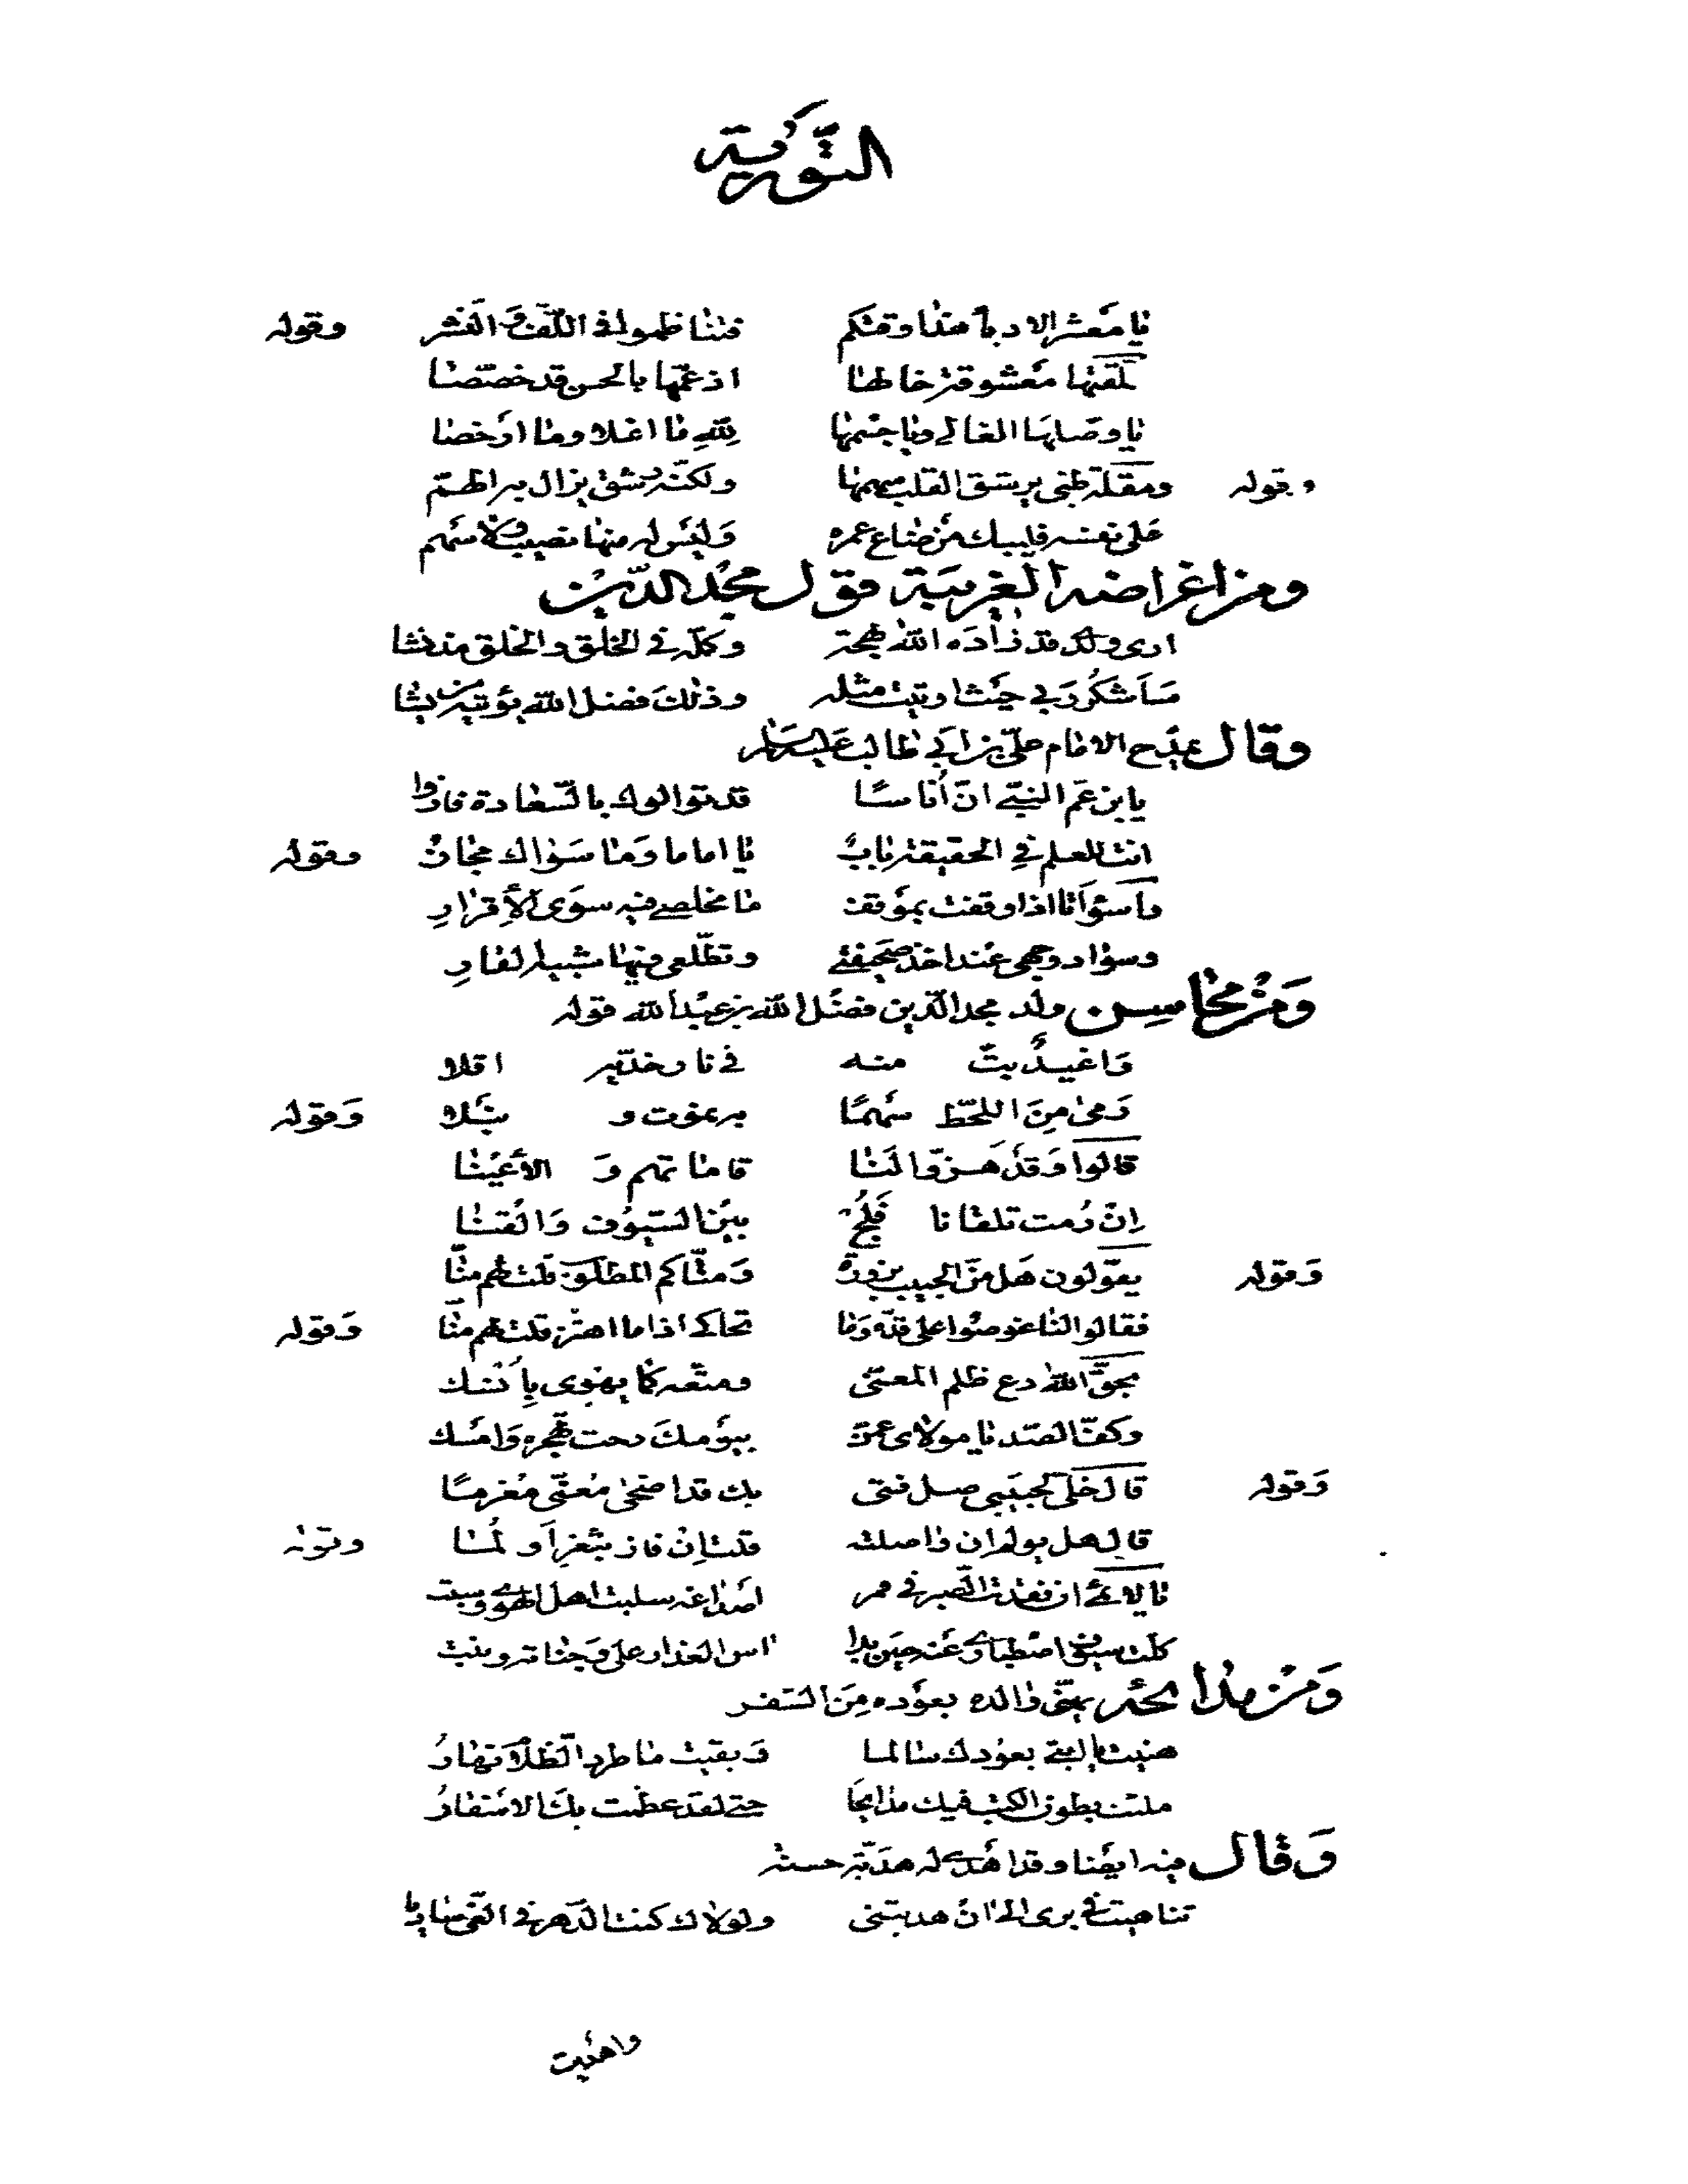 التورية
يا معشر الادباء هذا وقتكم فتناظموا في اللف والنشر وقوله
علقتها معشوقة خالها اذ عمها بالحسن قد خصصا
يا وصلها الغالي ويا جسمها لله ما اغلا وما ارخصا
وقوله ومقلة ظبي يرشق القلب سهمها
على نفسه فليبك من ضاع عمره وليس له منها نصيب ولا سهم
ومن اغراضه الغريبة قول مجد الدين
ارى ولدي قد زاده الله بهجة وكمله في الخلق والخلق مذ نشا
سأشكر ربي حيث اوتيت مثله وذلك فضل الله يؤتيه من يشا
وقال يمدح الامام علي بن ابي طالب عليه السلام
يا ابن عم النبي ان أناسا قد توالوك بالسعادة فازوا
انت للعلم في الحقيقة باب يا اماما وما سواك مجاز وقوله
واسوأتا اذا وقفت بموقف ما مخلصي فيه سوى الأقرار
وسواد وجهي عند اخذ صحيفتي وتطلعي فيها شبيه القار
ومن محاسن ولد مجد الدين فضل الله بن عبد الله قوله
واغيد بت منه في نار خديه اقلا
رمى من اللحظ سهما به يموت و يبلا وقوله
قالوا وقد هزوا لنا قاماتهم و الأعينا
ان رمت تلقانا فلج بين السيوف والقنا
وقوله يقولون هل من الحبيب بزورة ومناكم المطلوب قلت لهم منا
فقالوا لنا غوصوا على قده وما تحاكي اذا ما اهتز قلت لهم منا وقوله
بحق الله دع ظلم المعنى ومتعه كما يهوى بأنسك
وكف الصد يا مولاي عمن بيومك رحت تهجره وامسك
وقوله قال خلي لحبيبي صل فتى بك قد اضحى معنى مغرما
قال هل يولم ان واصلته قلت ان فاز بثغر او لما وقوله
يا لائمي ان فقدت الصبر في قمر اصداغه سلبت اهل الهوى وسبت
كلت سيوف اصطباري عنه حين بدا آس العذار على وجناته ونبت
ومن هذا يهني والده بعوده من السفر
هنيت يا ابتي بعودك سالما وبقيت ما طرد الظلام نهار
ملئت بطون الكتب فيك مدايحا حتى لقد عظمت بك الاسفار
وقال فيه ايضا وقد اهدى له هدية حسنة
تناهيت في بري الى ان هديتني ولولاك كنت الدهر في الغي ساديا
واهديت